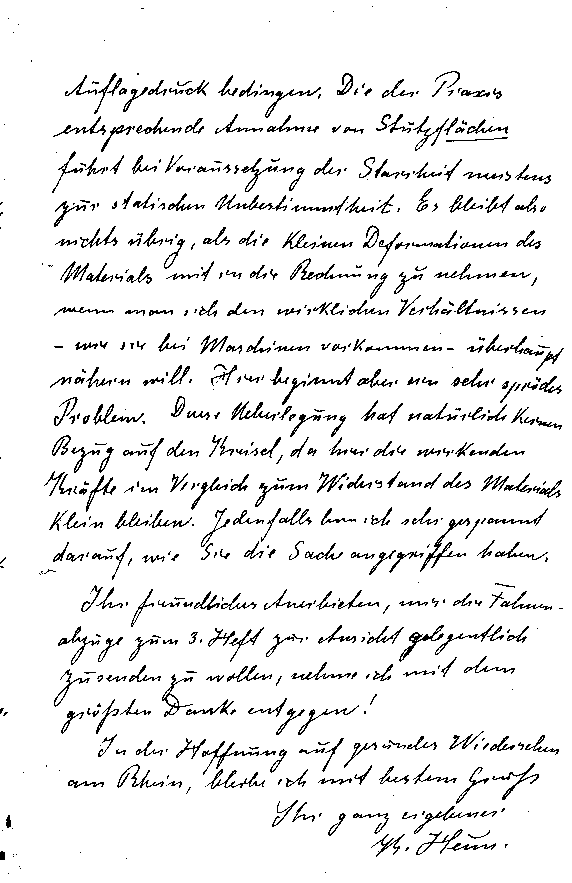 Auflagedruck bedingen. Die der Praxis
entsprechende Annahme von Stützflächen
führt bei Voraussetzung der Starrheit meistens
zur statischen Unbestimmtheit. Es bleibt also
nichts übrig, als die kleinen Deformationen des
Materials mit in die Rechnung zu nehmen,
wenn man sich den wirklichen Verhältnissen
– wie sie bei Maschinen vorkommen – überhaupt
nähern will. Hier beginnt aber ein sehr sprödes
Problem. Diese Ueberlegung hat natürlich keinen
Bezug auf den Kreisel, da hier die wirkenden
Kräfte im Vergleich zum Widerstand des Materials
klein bleiben. Jedenfalls bin ich sehr gespannt
darauf, wie Sie die Sache angegriffen haben.
Ihr freundliches Anerbieten, mir die Fahnen-
abzüge zum 3. Heft zur Ansicht gelegentlich
zusenden zu wollen, nehme ich mit dem
größten Danke entgegen!
In der Hoffnung auf gesundes Wiedersehen
am Rhein, bleibe ich mit bestem Gruß
Ihr ganz ergebener
K. Heun.